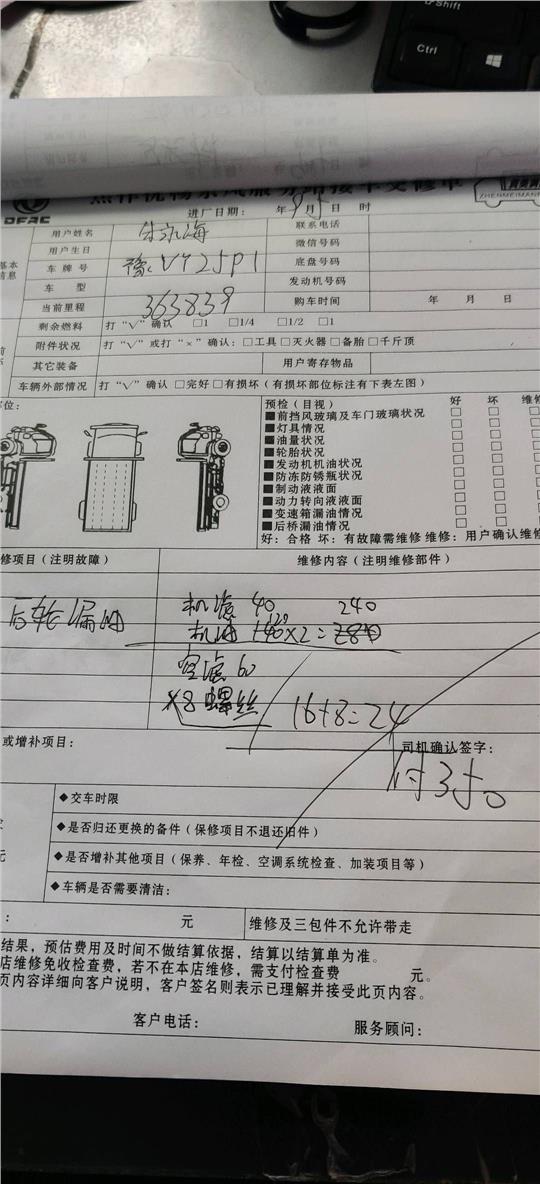 Shift
Ctrl
ZHENMEIMAN
进厂日期： 年 9 月 5 日 时
用户姓名 联系电话
用户生日 微信号码
基本信息
车牌号 豫VY25P1 底盘号码
车 型 发动机号码
当前里程 363839 购车时间 年 月 日
剩余燃料 打“√”确认 □1 □1/4 □1/2 □1
附件状况 打“√”或打“×”确认：□工具□灭火器□备胎□千斤顶
其它装备 用户寄存物品
车辆外部情况 打“√”确认 □完好□有损坏（有损坏部位标注有下表左图）
部位：
预检（目视） 好 坏 维修
■前挡风玻璃及车门玻璃状况 □ □ □
■灯具情况 □ □ □
■油量状况 □ □ □
■轮胎状况 □ □ □
■发动机机油状况 □ □ □
■防冻防锈瓶状况 □ □ □
■制动液液面 □ □ □
■动力转向液液面 □ □ □
■变速箱漏油情况 □ □ □
■后桥漏油情况 □ □ □
好：合格 坏：有故障需维修 维修：用户确认维修
修项目（注明故障） 维修内容（注明维修部件）
机滤 40 240
后轮漏油
空滤 60
×8 螺丝 16+8=24
或增补项目： 司机确认签字：
付350
◆交车时限
◆是否归还更换的备件（保修项目不退还旧件）
◆是否增补其他项目（保养、年检、空调系统检查、加装项目等）
元
◆车辆是否需要清洁：
： 元 维修及三包件不允许带走
结果，预估费用及时间不做结算依据，结算以结算单为准。
店维修免收检查费，若不在本店维修，需支付检查费 元。
页内容详细向客户说明，客户签名则表示已理解并接受此页内容。
客户电话： 服务顾问：